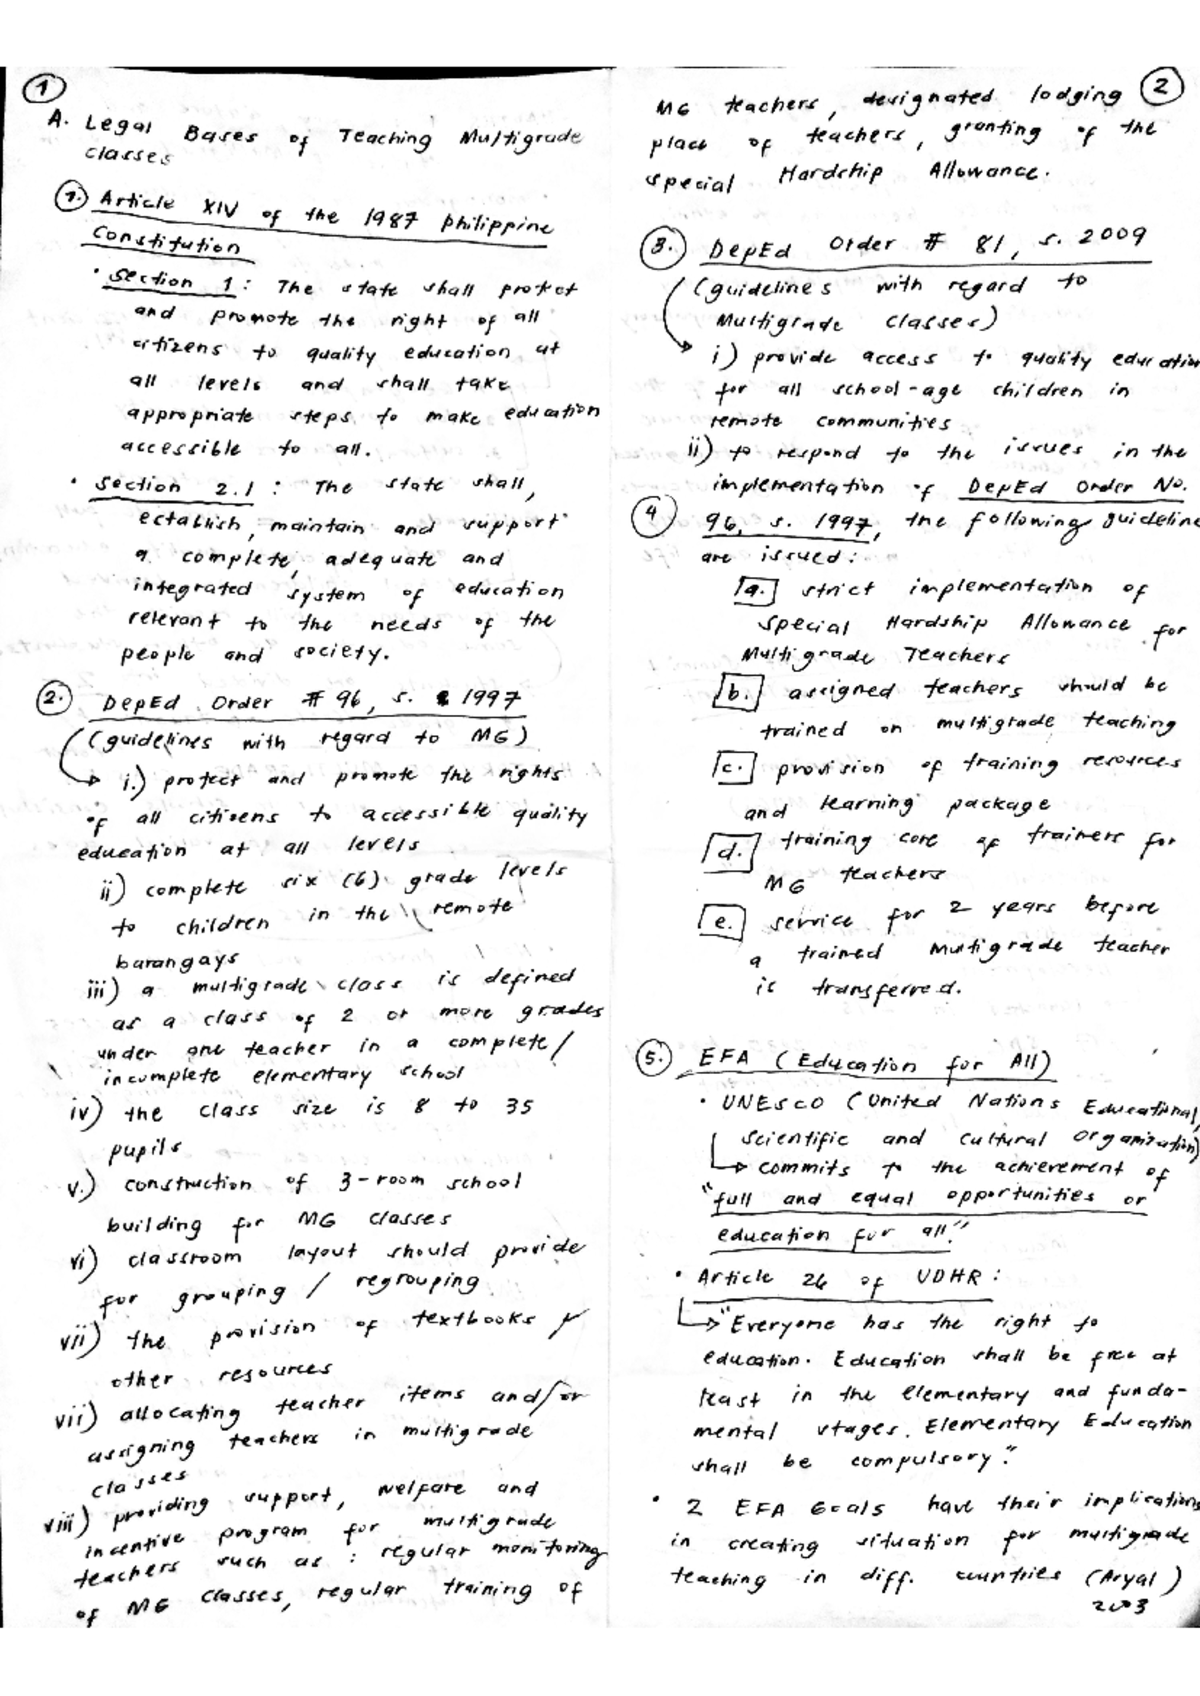 1
A. Legal Bases of Teaching Multigrade
classes
1. Article XIV of the 1987 Philippine
Constitution
• Section 1: The state shall protect
and promote the right of all
citizens to quality education at
all levels and shall take
appropriate steps to make education
accessible to all.
• Section 2.1: The state shall,
establish, maintain and support
a complete, adequate and
integrated system of education
relevant to the needs of the
people and society.
2. DepEd Order # 96, s. 1997
(guidelines with regard to MG)
i.) protect and promote the rights
of all citizens to accessible quality
education at all levels
ii) complete six (6) grade levels
to children in the remote
barangays
iii) a multigrade class is defined
as a class of 2 or more grades
under one teacher in a complete/
incomplete elementary school
iv) the class size is 8 to 35
pupils
v.) construction of 3-room school
building for MG classes
vi) classroom layout should provide
for grouping / regrouping
vii) the provision of textbooks &
other resources
vii) allocating teacher items and/or
assigning teachers in multigrade
classes
viii) providing support, welfare and
incentive program for multigrade
teachers such as: regular monitoring
of MG classes, regular training of
2
MG teachers, designated lodging
place of teachers, granting of the
special Hardship Allowance.
3. DepEd Order # 81, s. 2009
(guidelines with regard to
Multigrade classes)
i) provide access to quality education
for all school-age children in
remote communities
ii) to respond to the issues in the
implementation of DepEd Order No.
4 96, s. 1997, the following guideline
are issued:
a. strict implementation of
special Hardship Allowance for
Multigrade Teachers
b. assigned teachers should be
trained on multigrade teaching
c. provision of training resources
and learning package
d. training core of trainers for
MG teachers
e. service for 2 years before
a trained multigrade teacher
is transferred.
5. EFA (Education for All)
• UNESCO (United Nations Educational,
scientific and cultural organization)
commits to the achievement of
"full and equal opportunities or
education for all."
• Article 26 of UDHR:
"Everyone has the right to
education. Education shall be free at
least in the elementary and funda-
mental stages. Elementary Education
shall be compulsory."
• 2 EFA Goals have their implications
in creating situation for multigrade
teaching in diff. countries (Aryal)
2003